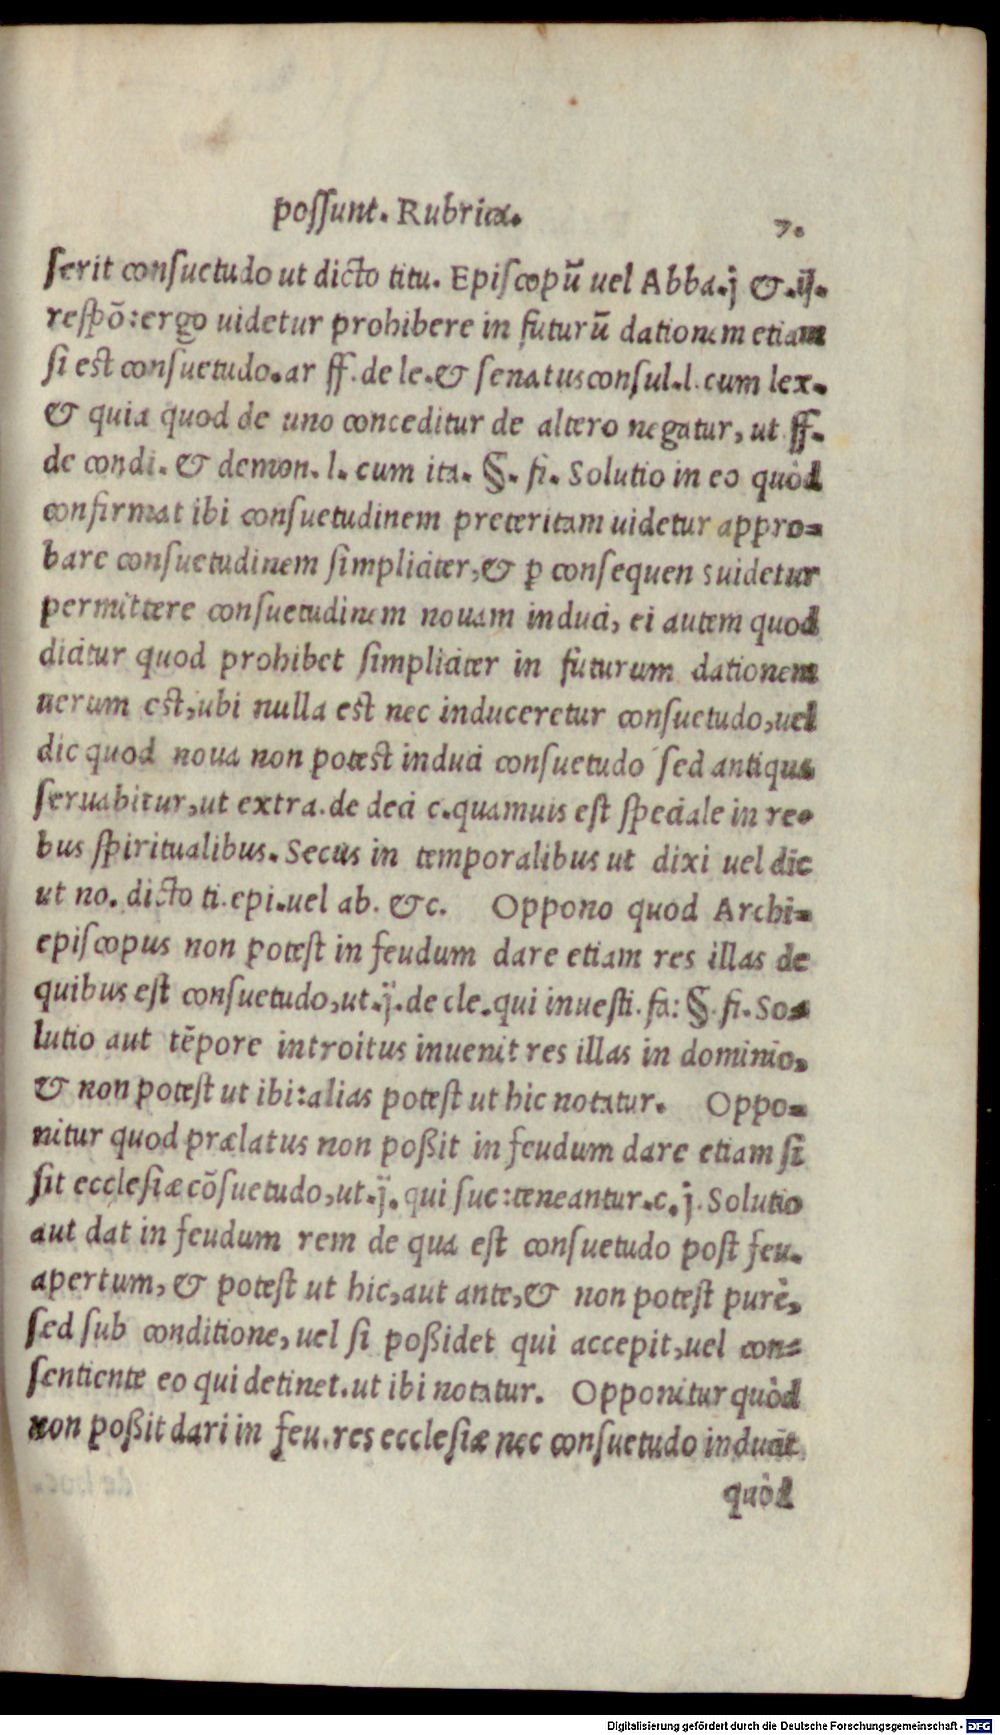 poſſunt. Rubrica.
7.
ſerit conſuetudo ut dicto titu. Epiſcopũ uel Abba.j & .ij.
reſpõ: ergo uidetur prohibere in futurũ dationem etiam
ſi eſt conſuetudo. ar ff. de le. & ſenatusconſul. l. cum lex.
& quia quod de uno conceditur de altero negatur, ut ff.
de condi. & demon. l. cum ita. §. fi. Solutio in eo quòd
confirmat ibi conſuetudinem preteritam uidetur appro=
bare conſuetudinem ſimpliciter, & p conſequen s uidetur
permittere conſuetudinem nouam induci, ei autem quod
dicitur quod prohibet ſimpliciter in futurum dationem
uerum eſt, ubi nulla eſt nec induceretur conſuetudo, uel
dic quod noua non poteſt induci conſuetudo ſed antiqua
ſeruabitur, ut extra. de deci c. quamuis eſt ſpeciale in re=
bus ſpiritualibus. Secus in temporalibus ut dixi uel dic
ut no. dicto ti. epi. uel ab. &c. Oppono quod Archi=
epiſcopus non poteſt in feudum dare etiam res illas de
quibus eſt conſuetudo, ut .ij. de cle. qui inueſti. fa: §. fi. So=
lutio aut tẽpore introitus inuenit res illas in dominio,
& non poteſt ut ibi: alias poteſt ut hic notatur. Oppo=
nitur quod prælatus non poßit in feudum dare etiam ſi
ſit eccleſiæ cõſuetudo, ut .ij. qui ſuc: teneantur. c. j. Solutio
aut dat in feudum rem de qua eſt conſuetudo poſt feu.
apertum, & poteſt ut hic, aut ante, & non poteſt purè,
ſed ſub conditione, uel ſi poßidet qui accepit, uel con=
ſentiente eo qui detinet. ut ibi notatur. Opponitur quòd
non poßit dari in feu. res eccleſiæ nec conſuetudo inducit
quòd
Digitalisierung gefördert durch die Deutsche Forschungsgemeinschaft - DFG